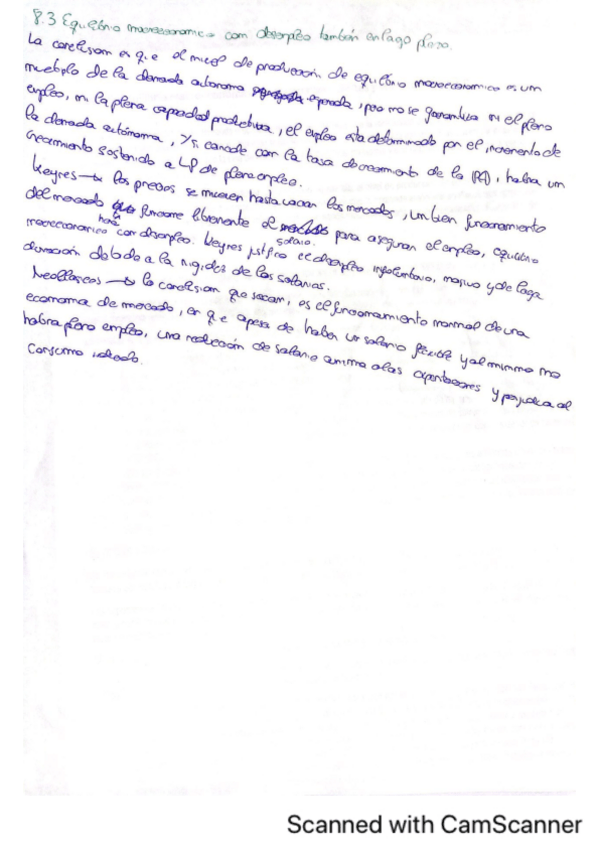 8.3 Equilibrio macroeconomico con desempleo también en largo plazo.
La conclusion es que el nivel de produccion de equilibrio macroeconomico es un
multiplo de la demanda autonoma esperada, pero no se garantiza ni el pleno
empleo, ni la plena capacidad productiva, el empleo esta determinado por el incremento de
la demanda autónoma, y si coincide con la tasa de crecimiento de la (PA), habra un
crecimiento sostenido a LP de pleno empleo.
Keynes → los precios se mueven hasta vaciar los mercados, un bien funcionamiento
del mercado que funcione libremente el salario para aseguran el empleo, equilibrio
macroeconomico habrá con desempleo. Keynes justifica el desempleo involuntario, masivo y de larga
duración debido a la rigidez de los salarios.
Neoclásicos → la conclusion que sacan, es el funcionamiento normal de una
economia de mercado, en que apesar de haber un salario flexible y al minimo no
habra pleno empleo, una reducción de salario anima a las exportaciones y perjudica al
Consumo
Scanned with CamScanner